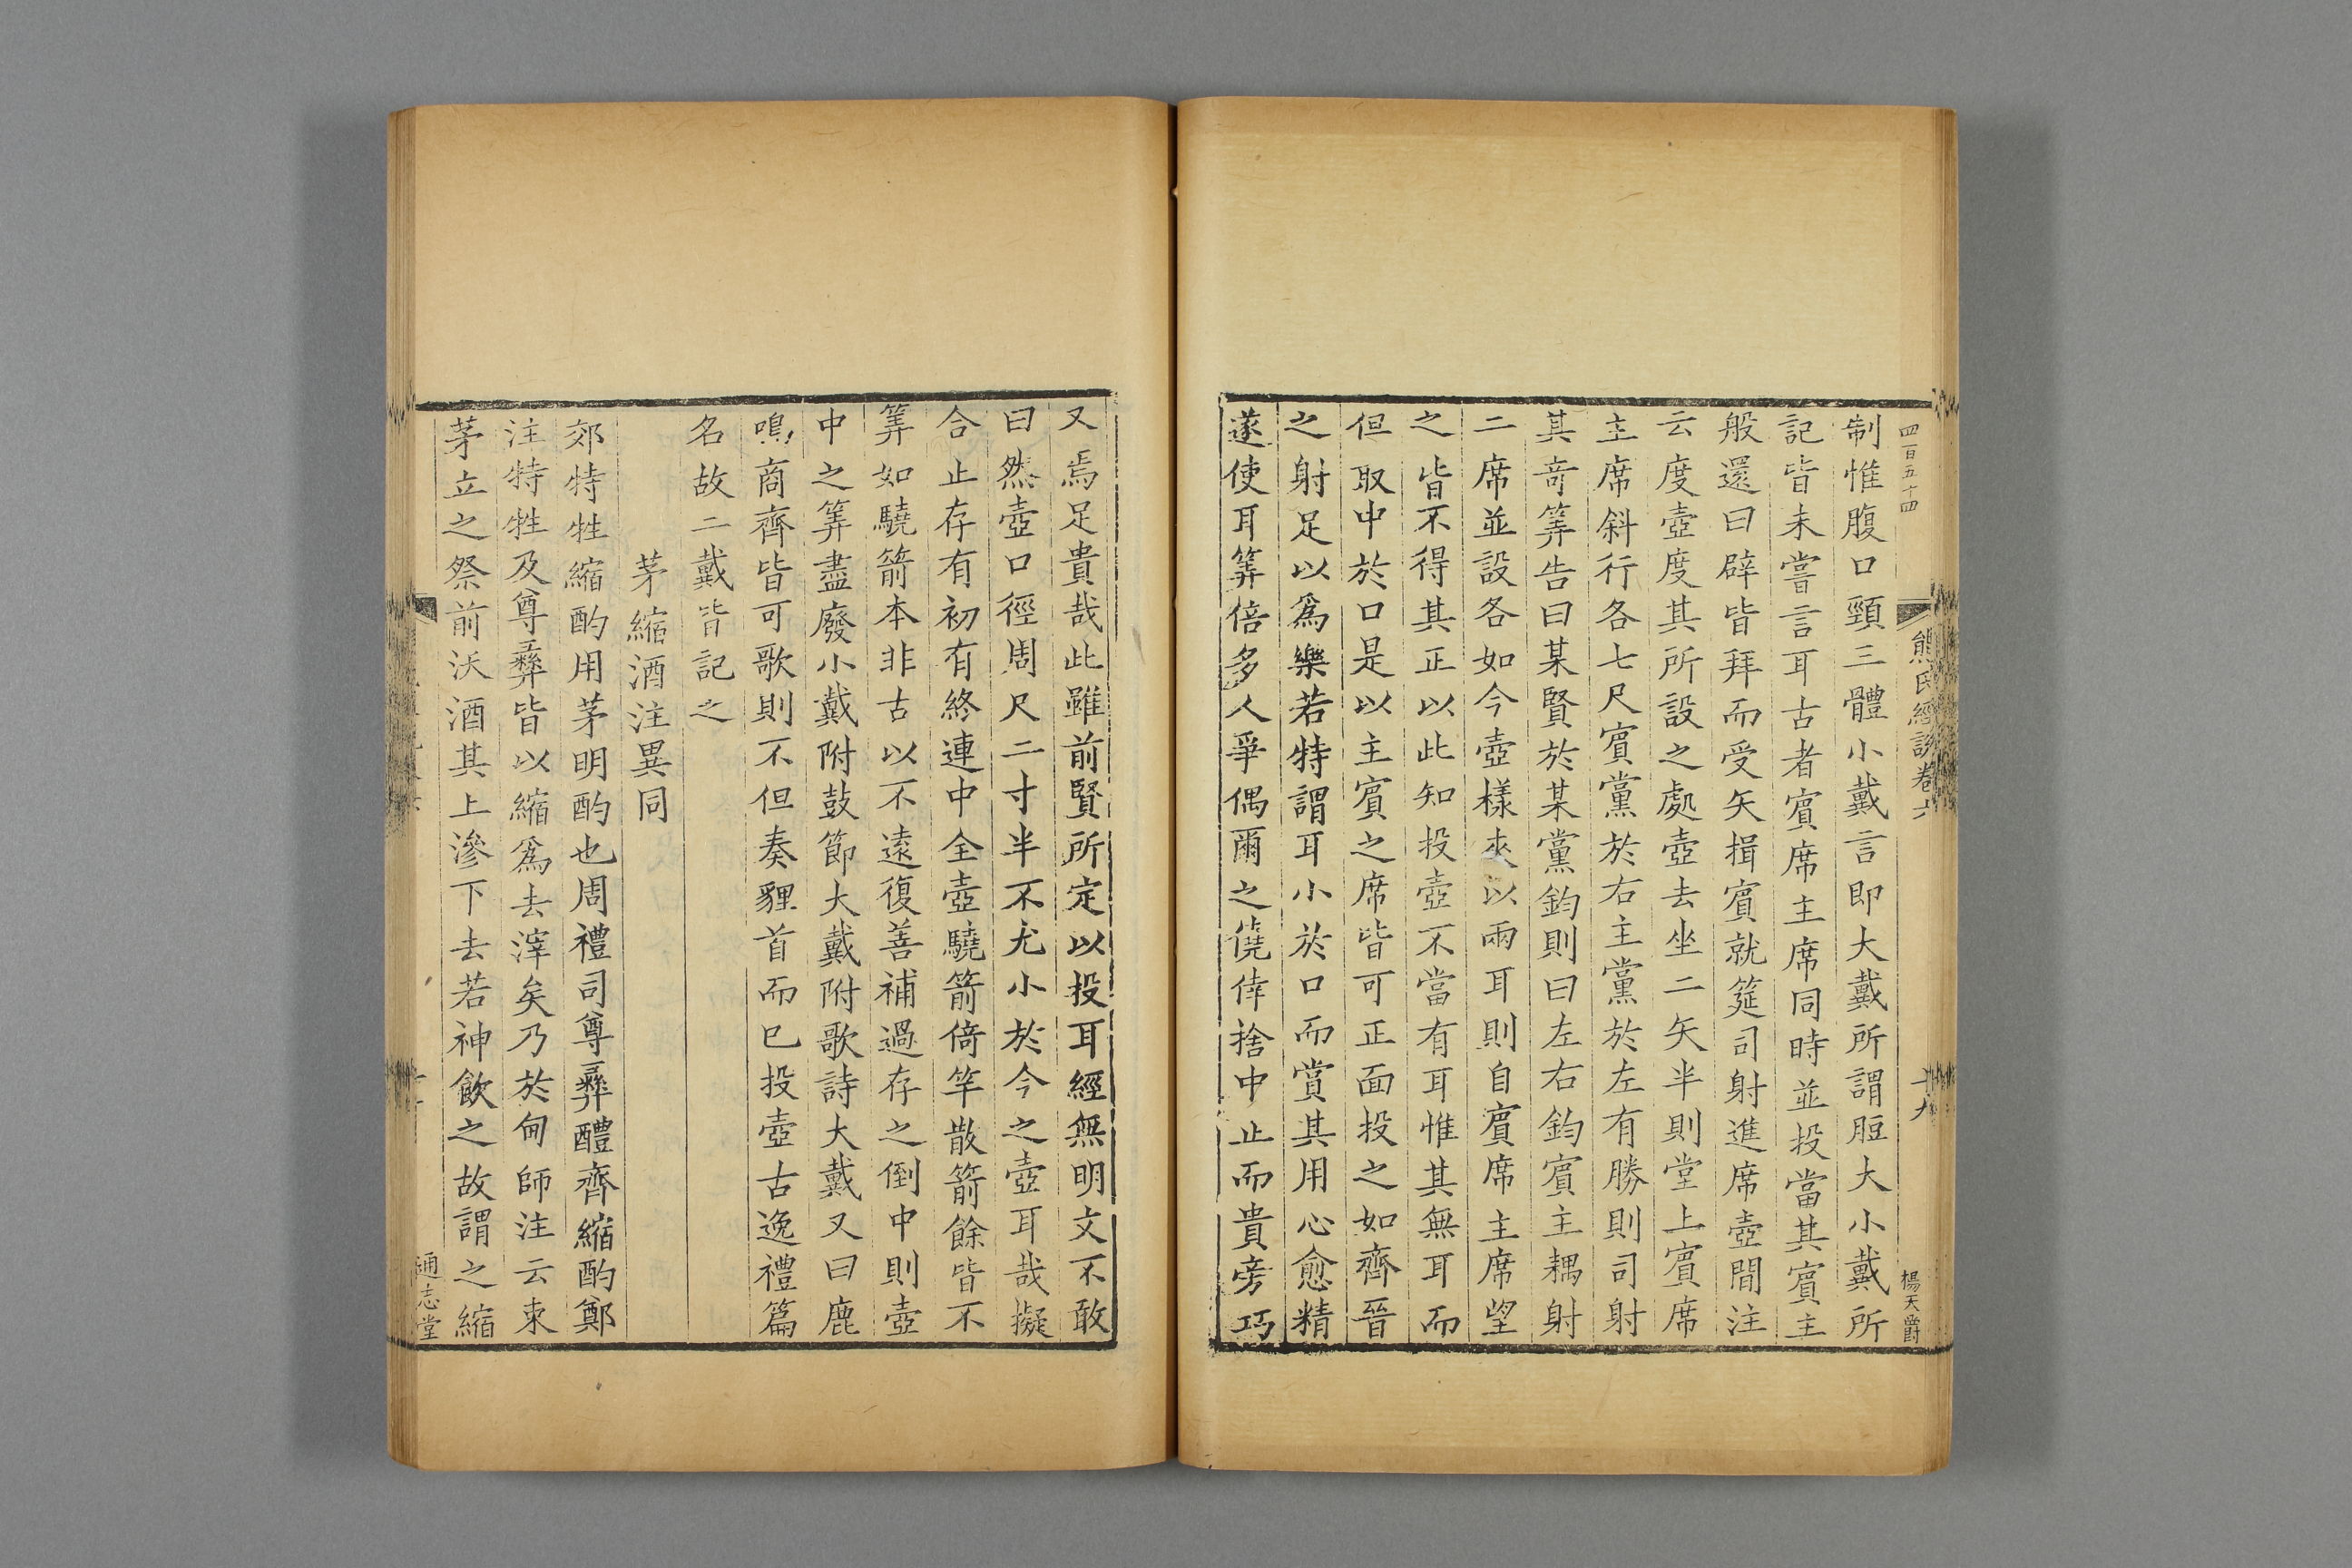 四百五十四
熊氏經說卷六
十九
楊天爵
制惟腹口頸三體小戴言即大戴所謂脰大小戴所
記皆未嘗言耳古者賓席主席同時並投當其賓主
般還曰辟皆拜而受矢揖賓就筵司射進席壺間注
云度壺度其所設之處壺去坐二矢半則堂上賓席
主席斜行各七尺賓黨於右主黨於左有勝則司射
其竒筭告曰某賢於某黨鈞則曰左右鈞賓主耦射
二席並設各如今壺樣夾以兩耳則自賓席主席望
之皆不得其正以此知投壺不當有耳惟其無耳而
但取中於口是以主賓之席皆可正面投之如齊晉
之射足以爲樂若特謂耳小於口而賞其用心愈精
遂使耳筭倍多人爭偶爾之僥倖捨中止而貴旁巧
又焉足貴哉此雖前賢所定以投耳經無明文不敢
曰然壺口徑周尺二寸半不尤小於今之壺耳哉擬
合止存有初有終連中全壺驍箭倚竿散箭餘皆不
筭如驍箭本非古以不遠復善補過存之倒中則壺
中之筭盡廢小戴附鼓節大戴附歌詩大戴又曰鹿
鳴商齊皆可歌則不但奏貍首而已投壺古逸禮篇
名故二戴皆記之
茅縮酒注異同
郊特牲縮酌用茅明酌也周禮司尊彝醴齊縮酌鄭
注特牲及尊彝皆以縮爲去滓矣乃於甸師注云束
茅立之祭前沃酒其上滲下去若神飲之故謂之縮
通志堂